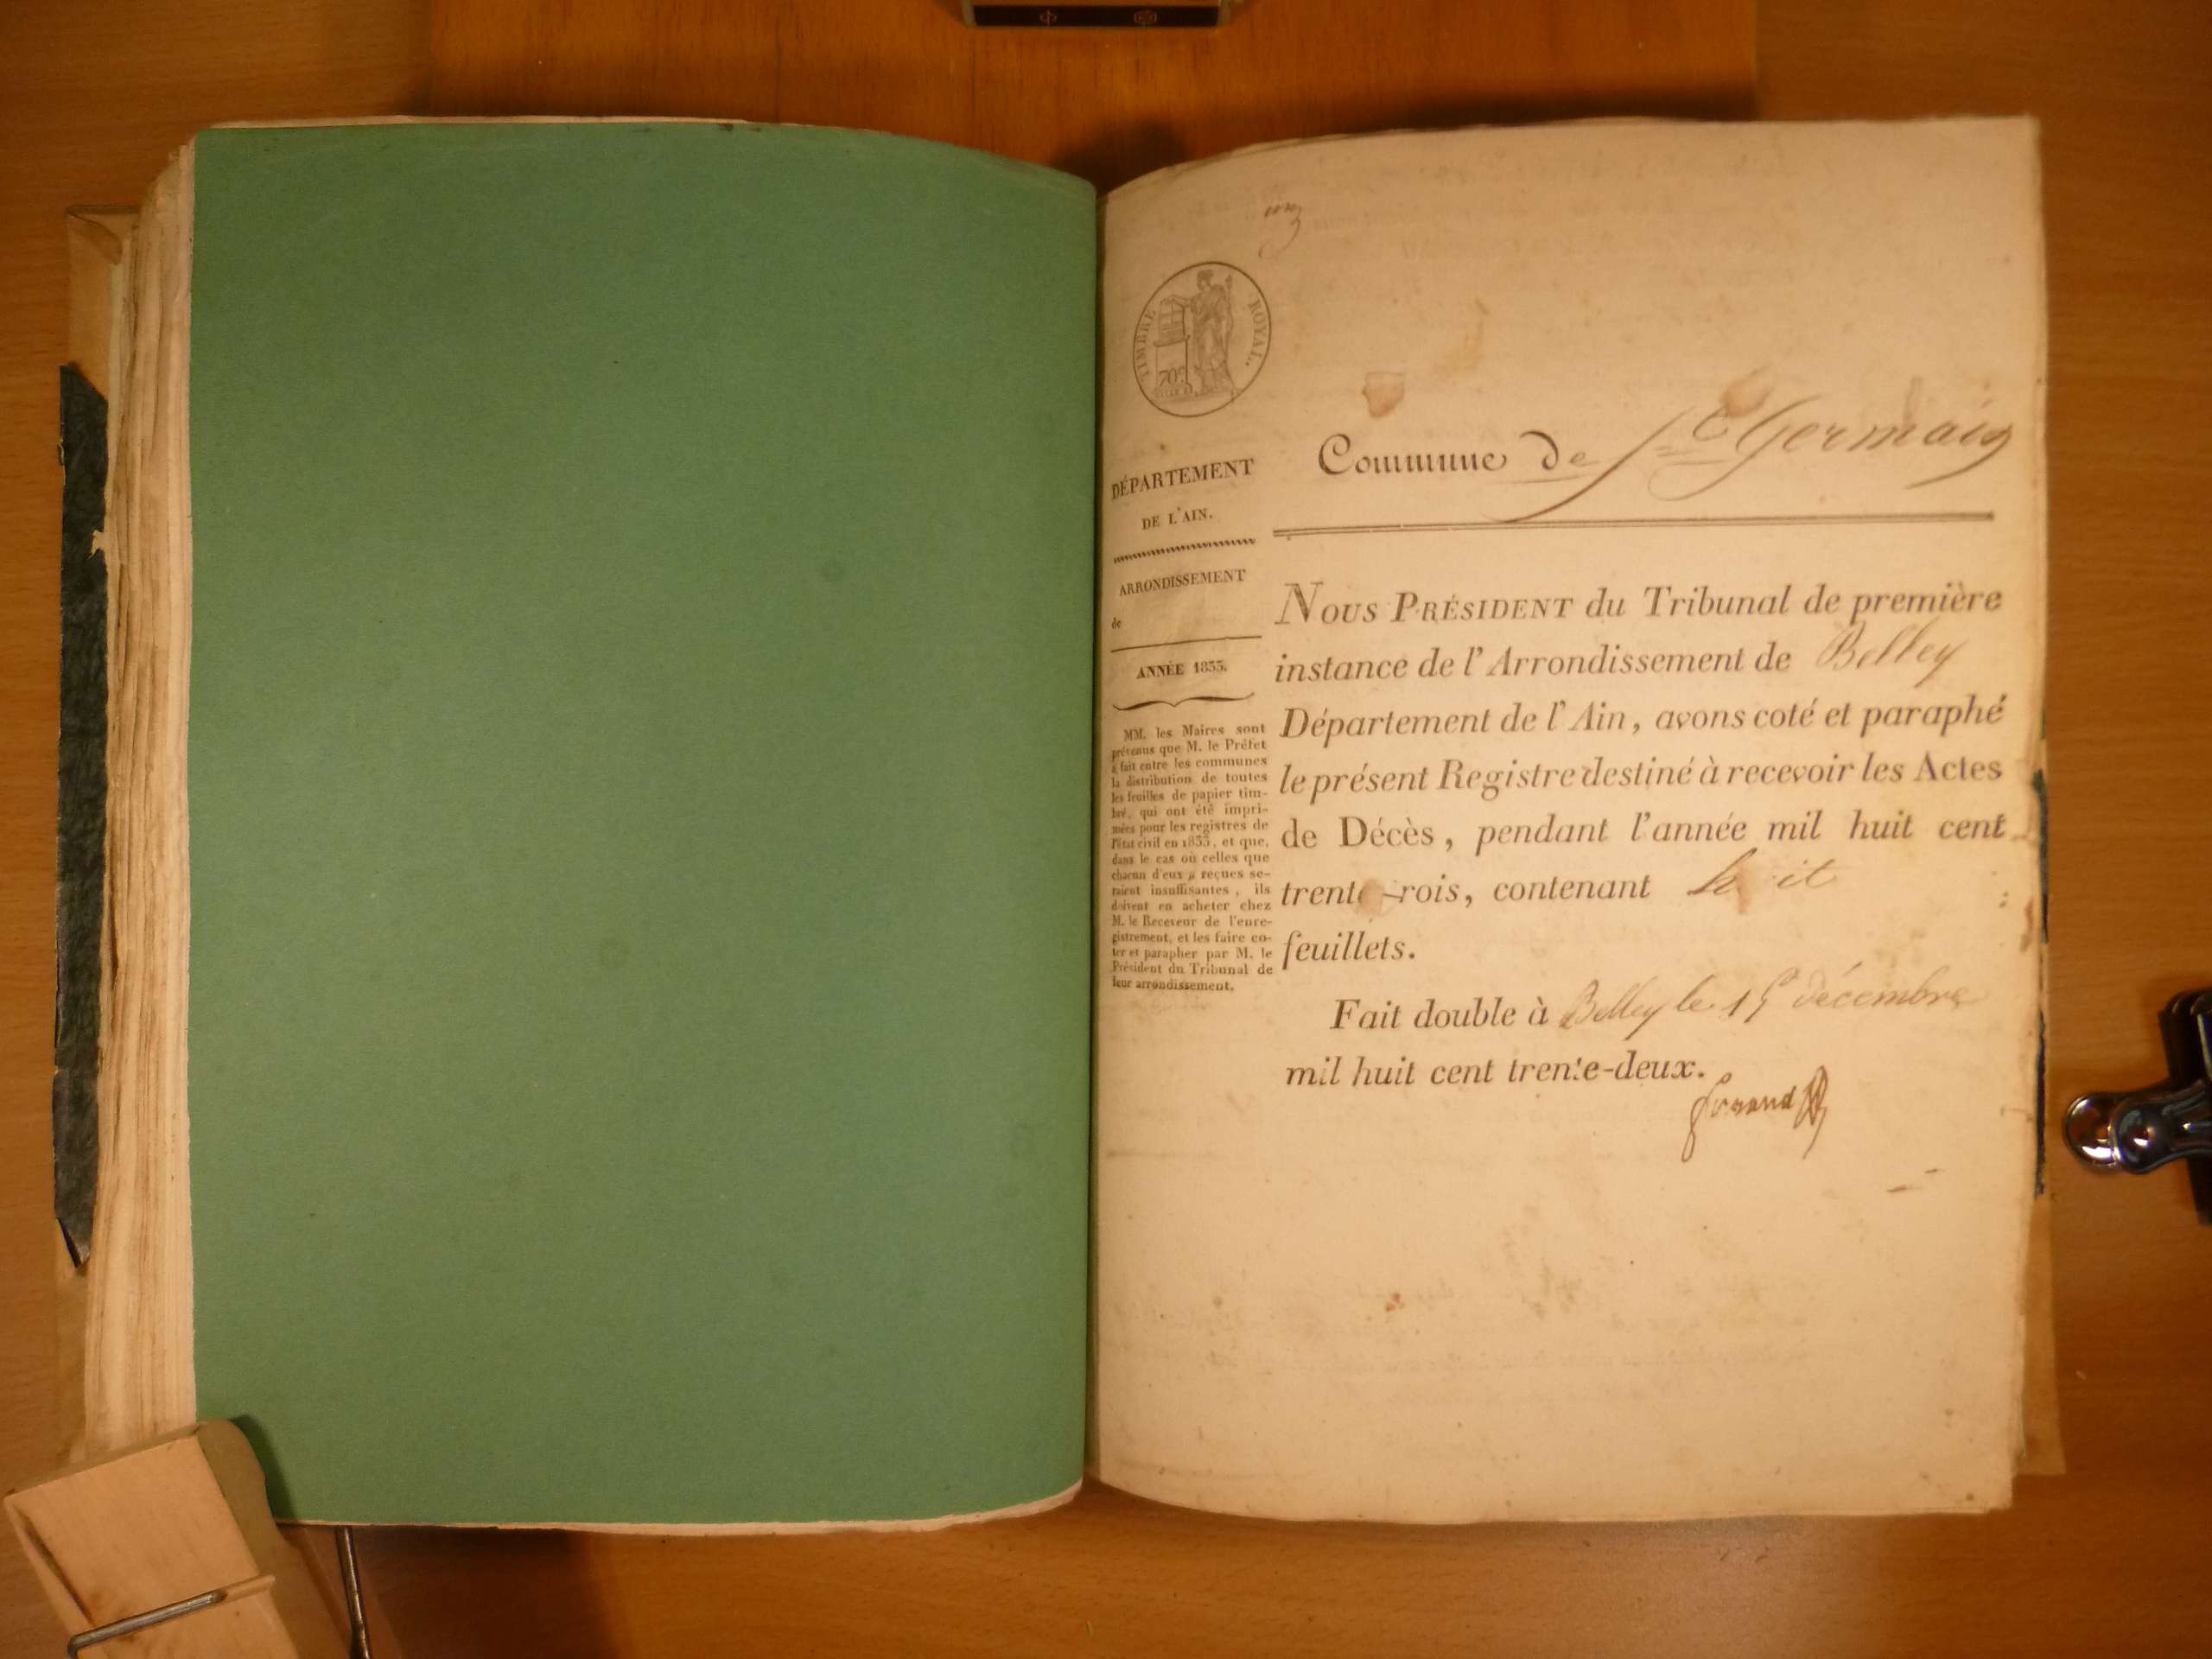 un
TIMBRE ROYAL.
70
DÉPARTEMENT
DE L'AIN.
ARRONDISSEMENT
de
ANNÉE 1833.
MM. les Maires sont
prévenus que M. le Préfet
a fait entre les communes
la distribution de toutes
les feuilles de papier tim-
bré, qui ont été impri-
mées pour les registres de
l'état civil en 1833, et que,
dans le cas où celles que
chacun d'eux a reçues se-
raient insuffisantes, ils
doivent en acheter chez
M. le Receveur de l'enre-
gistrement, et les faire co-
ter et parapher par M. le
Président du Tribunal de
leur arrondissement.
Commune de St Germain
NOUS PRÉSIDENT du Tribunal de première
instance de l'Arrondissement de Belley
Département de l'Ain, avons coté et paraphé
le présent Registre destiné à recevoir les Actes
de Décès, pendant l'année mil huit cent
trente-trois, contenant huit
feuillets.
Fait double à Belley le 15 décembre
mil huit cent trente-deux.